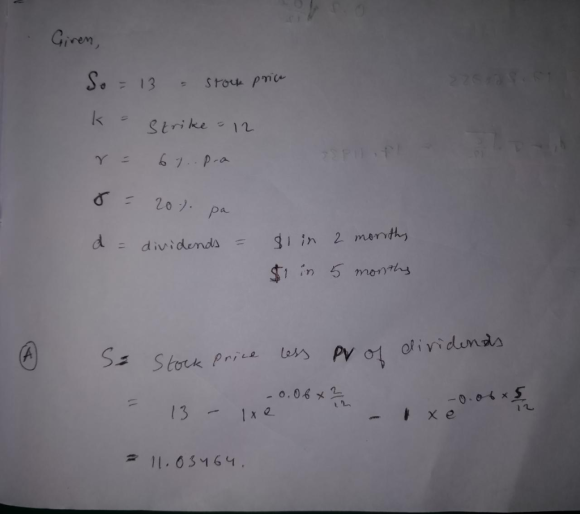 Given,
S₀ = 13 = stock price
k = Strike = 12
r = 6 %. p.a
σ = 20 %. pa
d = dividends = $1 in 2 months
$1 in 5 months
(A) S = Stock price less PV of dividends
= 13 - 1 x e^(-0.06 x 2/12) - 1 x e^(-0.06 x 5/12)
= 11.03464.